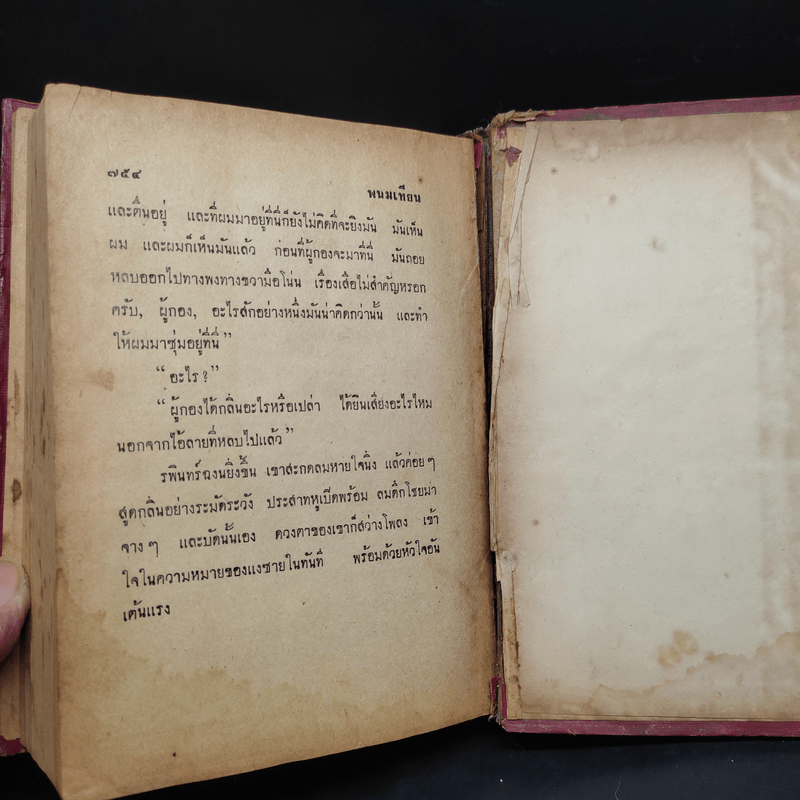 ๗๕๔
พนมเทียน
และตื่นอยู่ และที่ผมมาอยู่ที่นี่ก็ยังไม่คิดที่จะยิงมัน มันเห็น
ผม และผมก็เห็นมันแล้ว ก่อนที่ผู้กองจะมาที่นี่ มันถอย
หลบออกไปทางพงทางขวามือโน่น เรื่องเสือไม่สำคัญหรอก
ครับ, ผู้กอง, อะไรสักอย่างหนึ่งมันน่าคิดกว่านั้น และทำ
ให้ผมมาซุ่มอยู่ที่นี่”
“อะไร?”
“ผู้กองได้กลิ่นอะไรหรือเปล่า ได้ยินเสียงอะไรไหม
นอกจากไอ้ลายที่หลบไปแล้ว”
รพินทร์ฉงนยิ่งขึ้น เขาสะกดลมหายใจนิ่ง แล้วค่อยๆ
สูดกลิ่นอย่างระมัดระวัง ประสาทหูเปิดพร้อม ลมดึกโชยมา
จางๆ และบัดนั้นเอง ดวงตาของเขาก็สว่างโพลง เข้า
ใจในความหมายของแงซายในทันที พร้อมด้วยหัวใจอัน
เต้นแรง